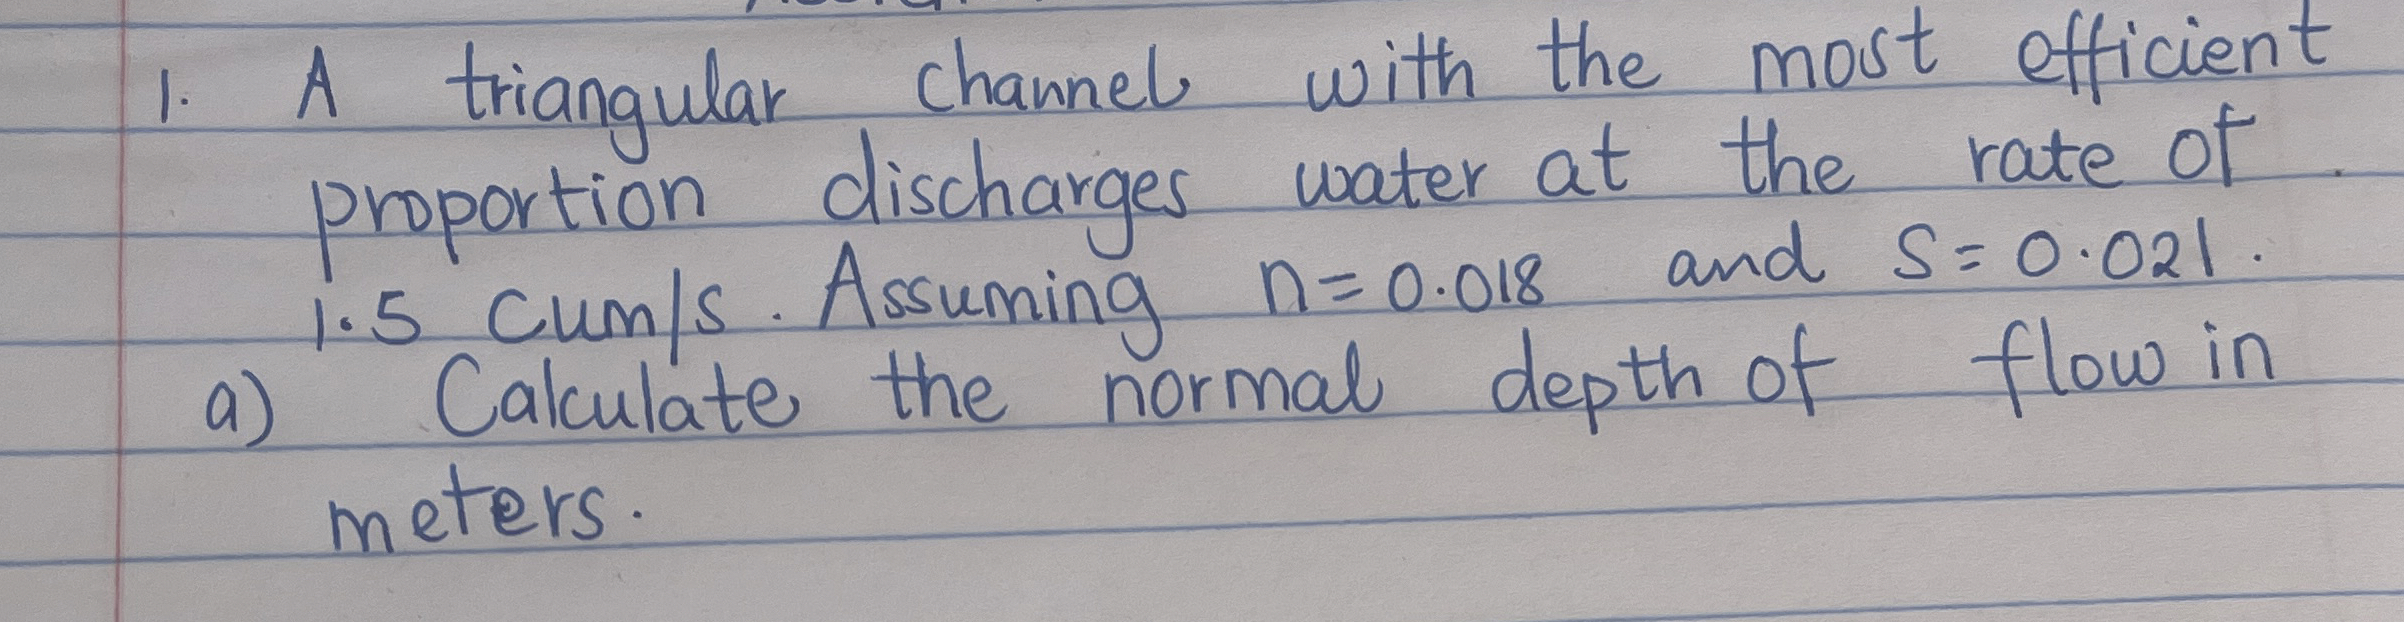 1. A triangular channel with the most efficient
proportion discharges water at the rate of
1.5 Cum/s. Assuming n=0.018 and S=0.021.
a) Calculate the normal depth of flow in
meters.